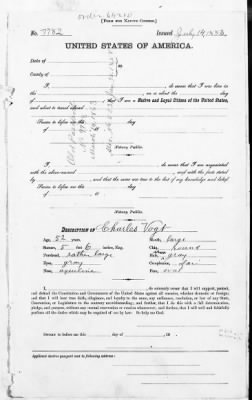 [FORM FOR NATIVE CITIZEN.]
No. 7782 Issued July 14, 1883
UNITED STATES OF AMERICA.
State of
County of
I, do swear that I was born in
on or about the day
of that I am a Native and Loyal Citizen of the United States,
and about to travel abroad
Sworn to before me, this day
of 18
Notary Public.
I, do swear that I am acquainted
with the above-named and with the facts stated
by and that the same are true to the best of my knowledge and belief.
Sworn to before me, this day
of 18
Notary Public.
DESCRIPTION OF Charles Vogt
Age, 52 years. Mouth, large
Stature, 5 feet 6 inches, Eng. Chin, Round
Forehead, rather large Hair, gray
Eyes, gray Complexion, fair
Nose, aquiline Face, oval
I, do solemnly swear that I will support, protect,
and defend the Constitution and Government of the United States against all enemies, whether domestic or foreign,
and that I will bear true faith, allegiance, and loyalty to the same, any ordinance, resolution, or law of any State,
Convention, or Legislature to the contrary notwithstanding; and further, that I do this with a full determination,
pledge, and purpose, without any mental reservation or evasion whatsoever; and further, that I will well and faithfully
perform all the duties which may be required of me by law: So help me God.
Sworn to before me, this day of 18
Notary Public.
Applicant desires passport to be sent to following address: